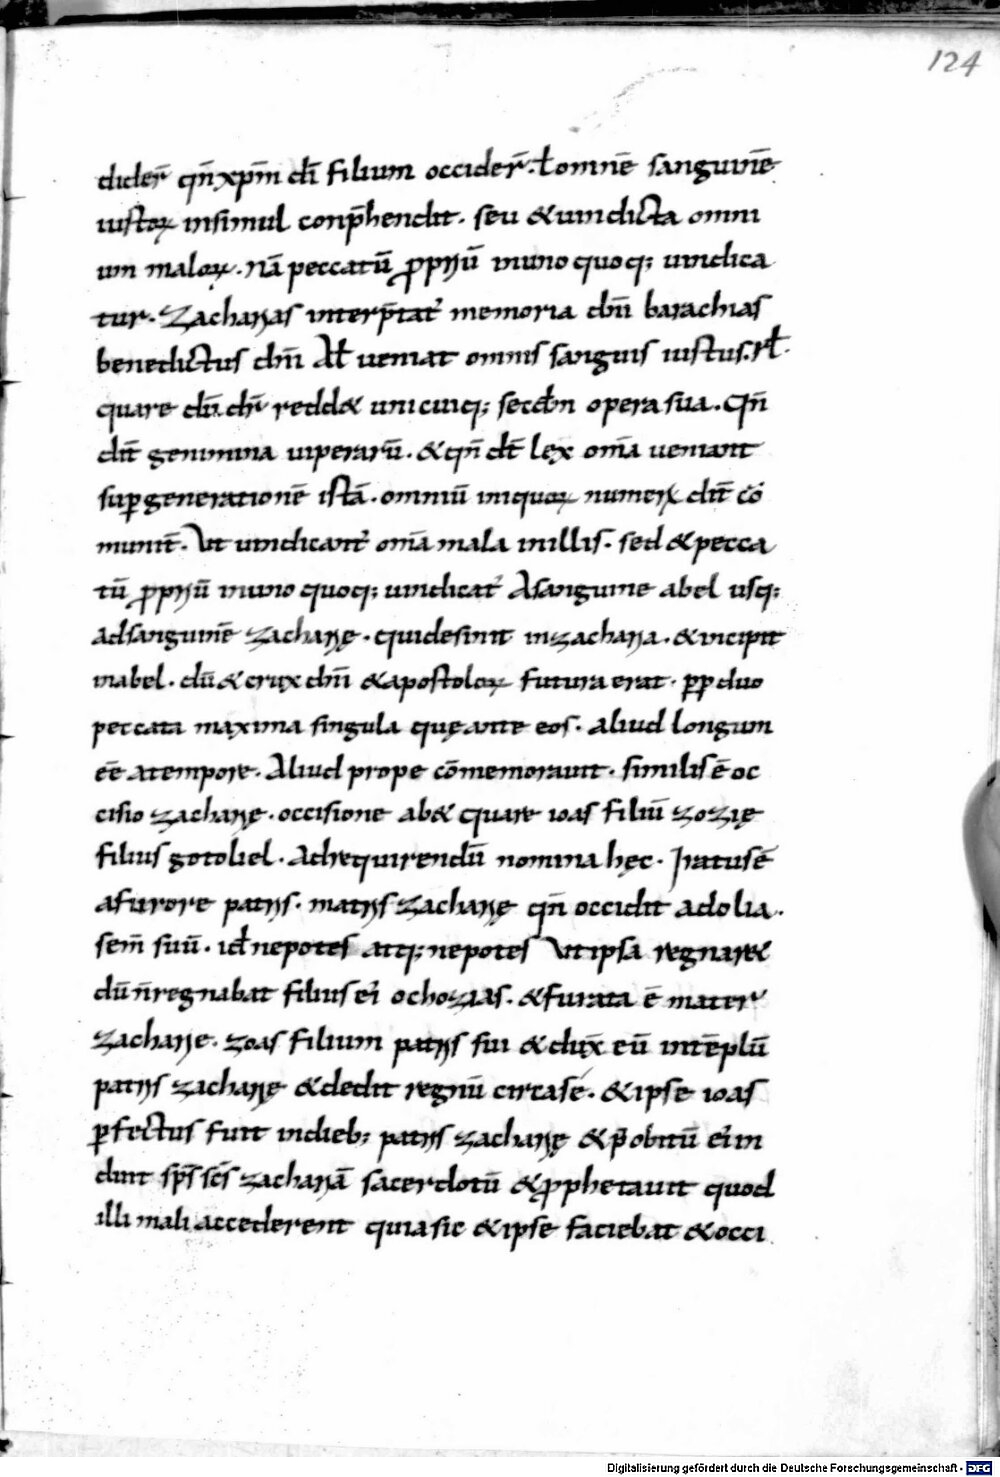 124
dider̄ qn̄ xp̄m dī filium occider̄. ł omnē sanguinē
iustoꝝ insimul conp̄hendit. seu & uindicta omni
um maloꝝ. nā peccatū ꝓpriū in uno quoq; uindica
tur. Zacharias interp̄tat᷑ memoria dn̄i barachias
benedictus dn̄i Al̄ ueniat omnis sanguis iustus. Rł.
quare dū dr̄ redd& unicuiq; secdm̄ opera sua. Qn̄
dn̄t genimina uiperarū. & qn̄ dt̄ lex om̄a ueniant
sup generationē istā. omniū iniquoꝝ numerꝰ dn̄t cō
munit̄. Ut uindicant᷑ om̄a mala in illis. sed & pecca
tū ꝓpriū in uno quoq; uindicat᷑ A sanguine abel usq;
ad sanguinē zacharię. qui desinit in zacharia. & incipit
in abel. dū & crux dn̄i & apostoloꝝ futura erat. ꝓp duo
peccata maxima singula quę ante eos. aliud longum
eē a tempore. Aliud prope cōmemorauit. similis ē oc
cisio zacharię. occisione ab& quare ioas filiū zozię
filius gotoliel. Ad requirendū nomina hęc. Iratus ē
a furore patris. matris zacharię qn̄ occidit adolia.
sem̄ suū. id̄ nepotes atq; nepotes Ut ipsa regnar&
dū n̄ regnabat filius ei᷑ ochozias. & furata ē mater
zacharie. zoas filium patris sui & duxꝰ eū in tēplū
patris zacharię & dedit regnū circa se. & ipse ioas
ꝑfectus fuit in dieb; patris zacharię & p̄ obitū ei᷑ in
duit sp̄s sc̄s zachariā sacerdotū & ꝓphetauit quod
illi mali accederent quia sic & ipse faciebat & occi
Digitalisierung gefördert durch die Deutsche Forschungsgemeinschaft - DFG